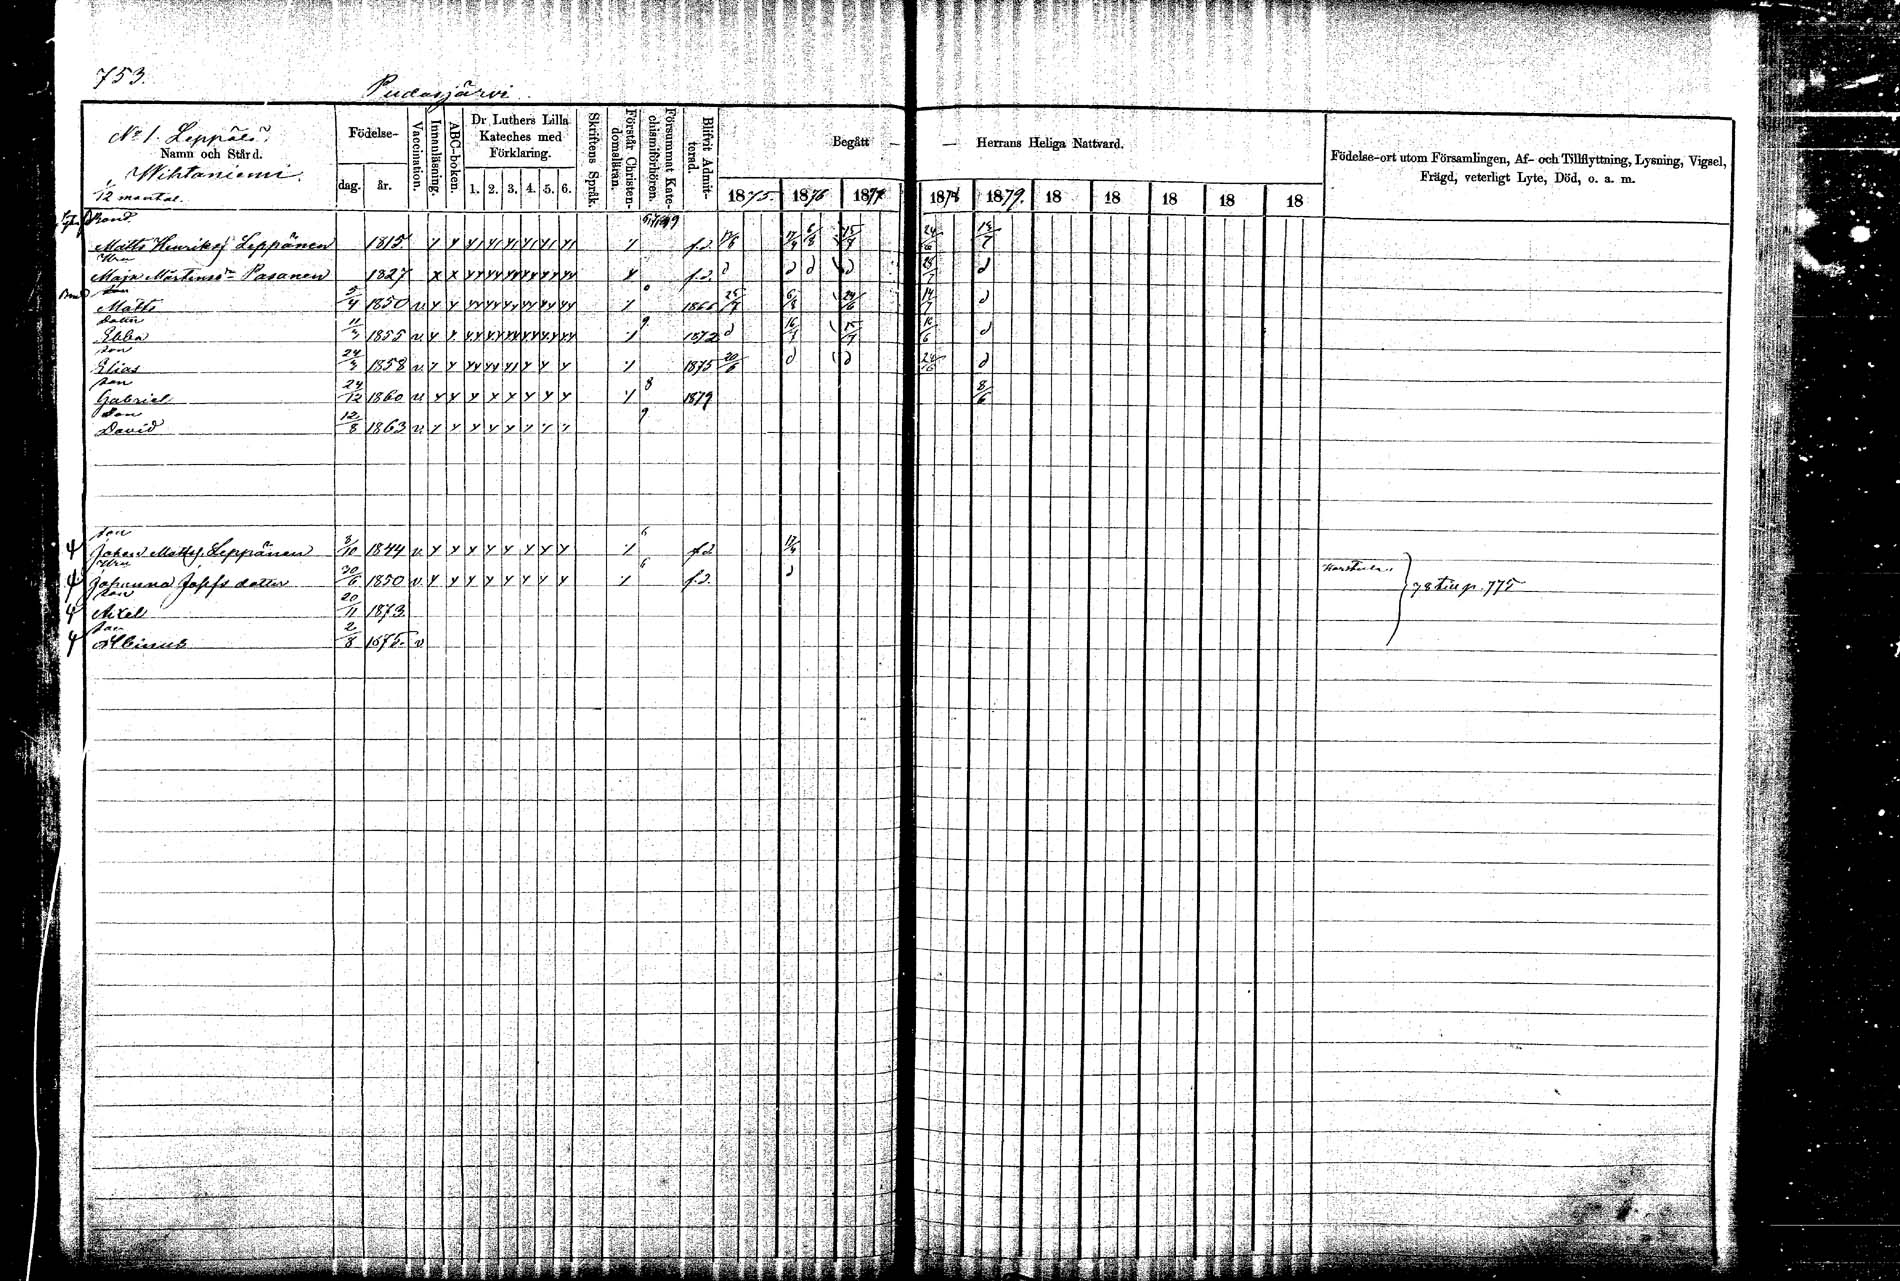 753.
Pudasjärvi
No 1. Leppälä
Namn och Stånd.
Wihtaniemi.
1/12 mantal.
Födelse-
dag. år.
Vaccination.
Innanläsning.
ABC-boken.
Dr Luthers Lilla Kateches med Förklaring.
1. 2. 3. 4. 5. 6.
Skriftens Språk.
Förstår Christendomsläran.
Försummat Katechismiförhören.
Blifvit Admitterad.
Begått — — Herrans Heliga Nattvard.
1875. 1876 1877 1878 1879. 18 18 18 18 18
Födelse-ort utom Församlingen, Af- och Tillflyttning, Lysning, Vigsel,
Frägd, veterligt Lyte, Död, o. a. m.
Bond
Matts Henriksf Leppänen 1815 f.d. 17/6 15/7 24/6 14/7
Hru
Maja Mårtensdr Pasanen 1827 f.d. d d d d 28/7 d
son
Matts 5/4 1850 v 1866 25/7 6/8 24/6 14/7 d
dotter
Ebba 1855 v 9 1872 d 15/7 d
son
Elias 1858 v 1875 20/6 d d d
son
Gabriel 24/12 1860 v 8 1879 8/6
son
David 12/8 1863 v 9
son
Johan Mattsf. Leppänen 3/10 1844 v 6 f.d. 17/9
Hru
Johanna Josefs dotter 30/6 1850 v 6 f.d. d Karstula 78 till p. 775
son
Axel 20/11 1873
son
Albinus 2/8 1875. v